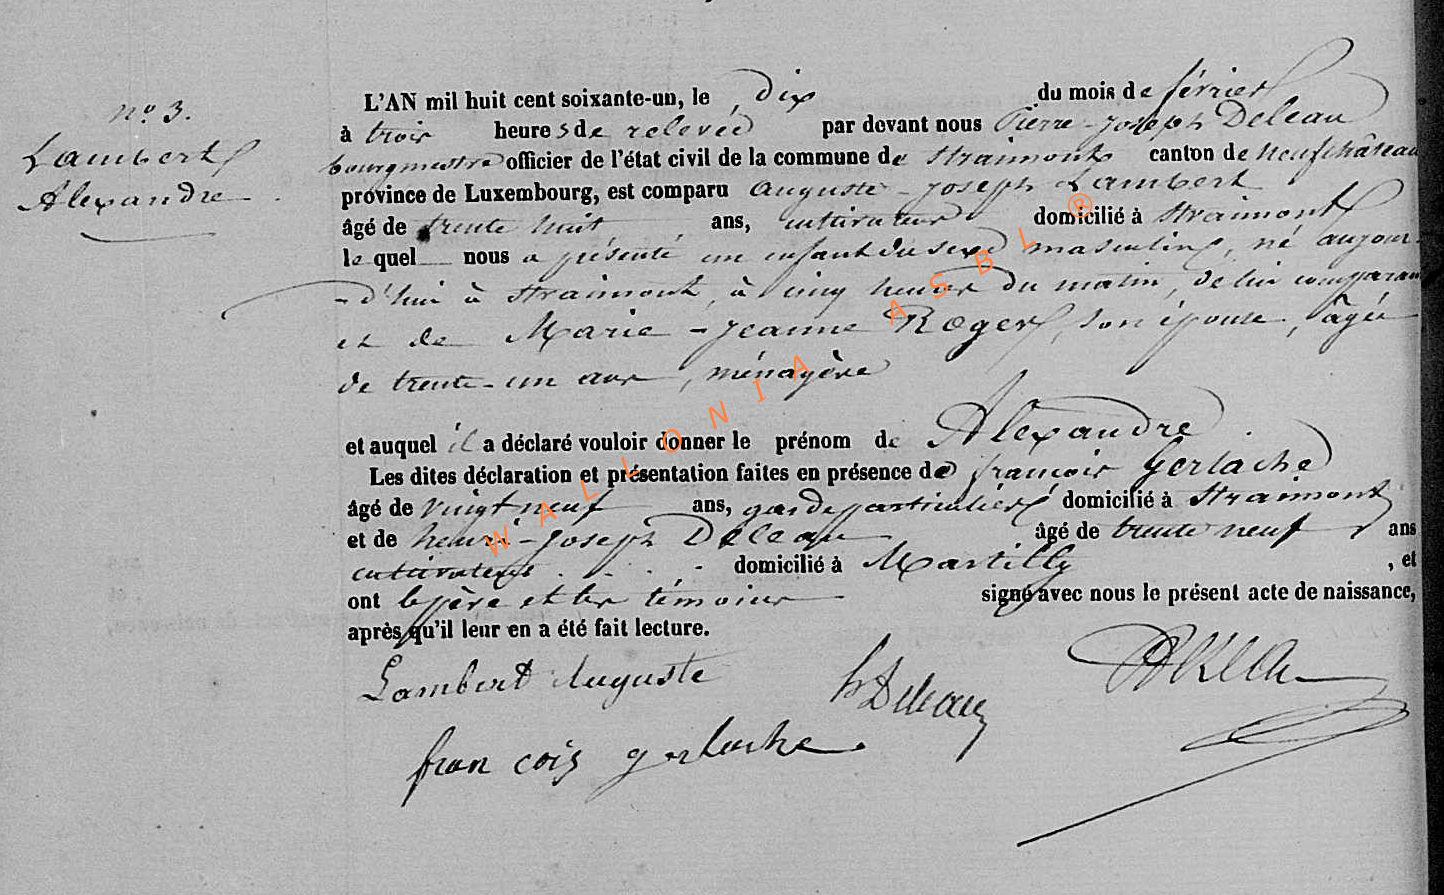 nº 3.
Lambert
Alexandre
L'AN mil huit cent soixante-un, le dix du mois de février
à trois heures de relevée par devant nous Pierre-Joseph Deleau
bourgmestre officier de l'état civil de la commune de Straimont canton de Neufchâteau
province de Luxembourg, est comparu Auguste-Joseph Lambert
âgé de trente huit ans, cultivateur domicilié à Straimont
lequel nous a présenté un enfant du sexe masculin, né aujour-
-d'hui à Straimont, à cinq heures du matin, de lui comparant
et de Marie-Jeanne Roger, son épouse, âgée
de trente-un ans, ménagère
et auquel il a déclaré vouloir donner le prénom de Alexandre.
Les dites déclaration et présentation faites en présence de françois Gerlache
âgé de vingt neuf ans, garde particulier domicilié à Straimont
et de henri-Joseph Deleau âgé de trente neuf ans
cultivateur domicilié à Martilly, et
ont le père et les témoins signé avec nous le présent acte de naissance,
après qu'il leur en a été fait lecture.
Lambert Auguste
h Deleau
françois gerlache
WALLONIA ASBL ®